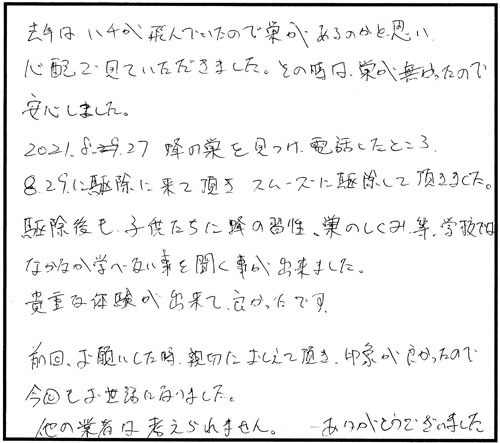 去年は ハチが 飛んでいたので巣が あるのかと思い
心配で見ていただきました。その時は、巣が無かったので
安心しました。
2021.8.27 蜂の巣を見つけ、電話したところ、
8.29.に駆除に来て頂き スムーズに駆除して頂きました。
駆除後も、子供たちに蜂の習性、巣のしくみ、等、学校では
なかなか学べない事を聞く事が出来ました。
貴重な体験が出来て、良かったです。
前回、お願いした時、親切におしえて頂き、印象が良かったので
今回もお世話になりました。
他の業者は考えられません。 ―ありがとうございました